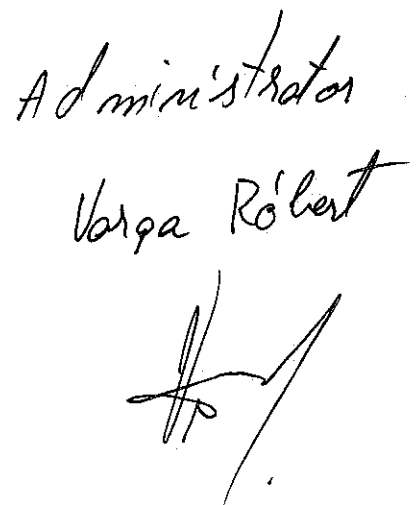 Administrator
Varga Róbert